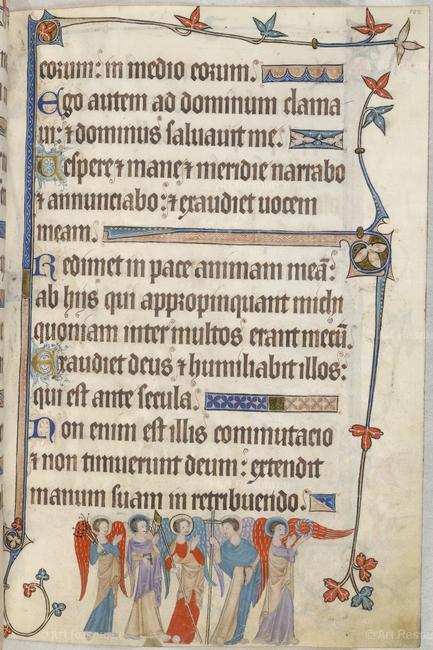 eorum: in medio eorum.
Ego autem ad dominum clama
ui: ⁊ dominus saluauit me.
Uespere ⁊ mane ⁊ meridie narrabo
⁊ annunciabo: ⁊ exaudiet uocem
meam.
Redimet in pace animam meā:
ab hiis qui appropinquant michi
quoniam inter multos erant mecū.
Exaudiet deus ⁊ humiliabit illos:
qui est ante secula.
Non enim est illis commutacio
⁊ non timuerunt deum: extendit
manum suam in retribuendo.